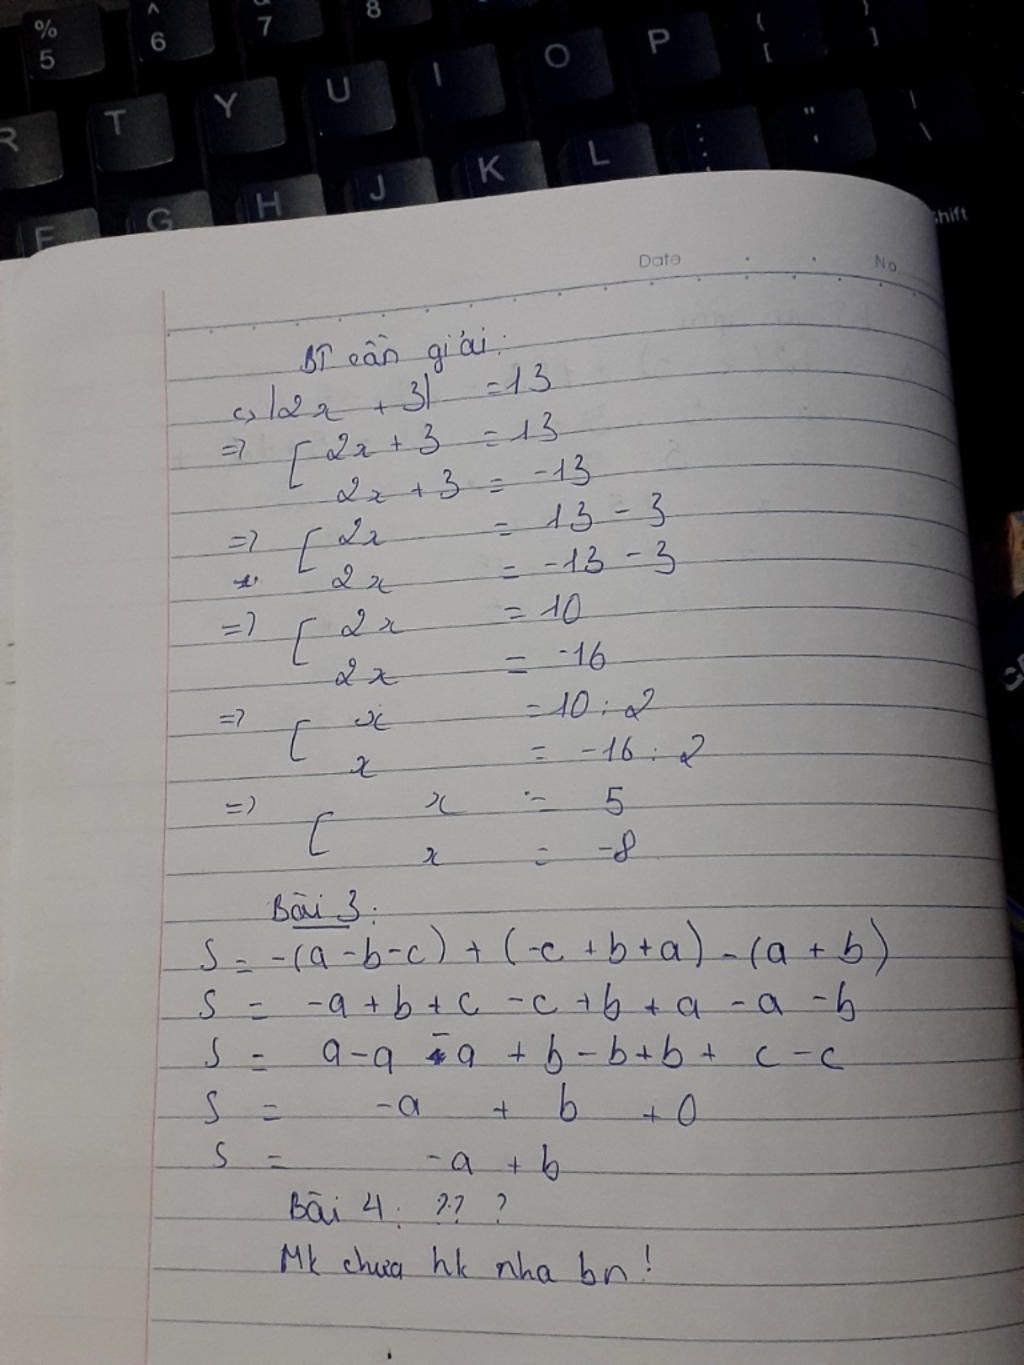 % ^ & 8
5 6 7
R T Y U I O P { [ } ]
F G H J K L : ; " ' | \
Shift
Date No
BT cần giải:
c, |2x + 3| = 13
=> [ 2x + 3 = 13
2x + 3 = -13
=> [ 2x = 13 - 3
2x = -13 - 3
=> [ 2x = 10
2x = -16
=> [ x = 10 : 2
x = -16 : 2
=> [ x = 5
x = -8
Bài 3:
S = -(a - b - c) + (-c + b + a) - (a + b)
S = -a + b + c - c + b + a - a - b
S = a - a - a + b - b + b + c - c
S = -a + b + 0
S = -a + b
Bài 4: ?? ?
Mk chưa hk nha bn!